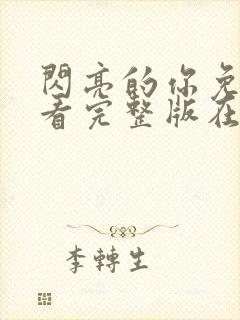 閃亮的你免
看完整版在
李轉生